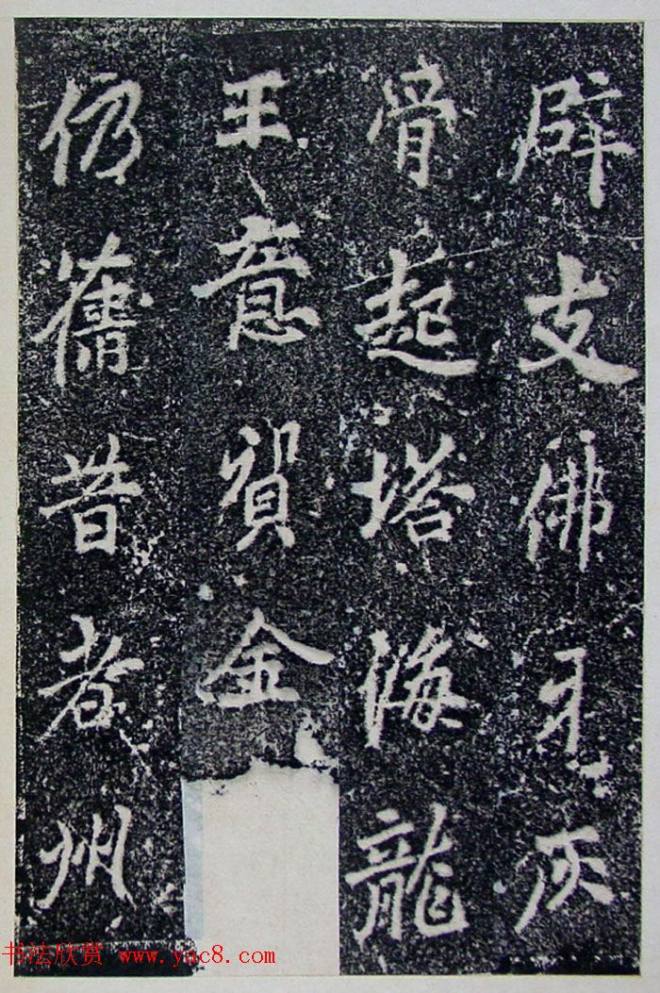 辟支佛牙灰
骨起塔海龍
王意貿金
仍舊昔者州
书法欣赏 www.yac8.com